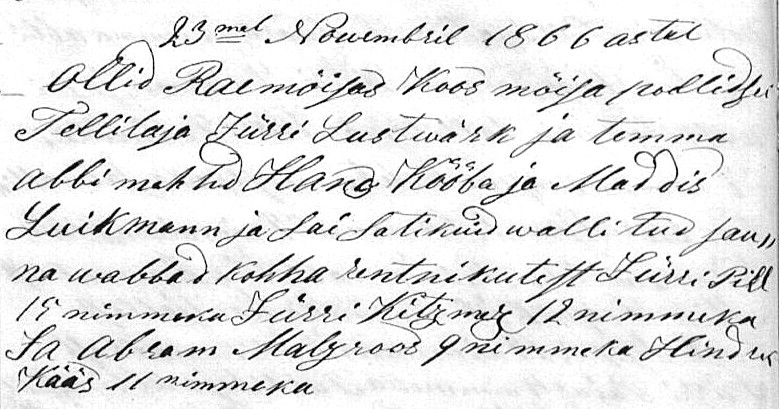 23 mel Nowembril 1866 astal
Ollid Raemöisas Koos möisa polidsei
Tellilaja Jürri Lustwärk ja temma
abbi mehhed Hans Kööba ja Maddis
Luikmann ja sai satikuid wallitud jau„
na wabbad kohha rentnikutest Jürri Pill
15 nimmeka Jürri Kitzmez 12 nimmeka
Ja Abram Malzroos 9 nimmeka Hindrek
Kääs 11 nimmeka